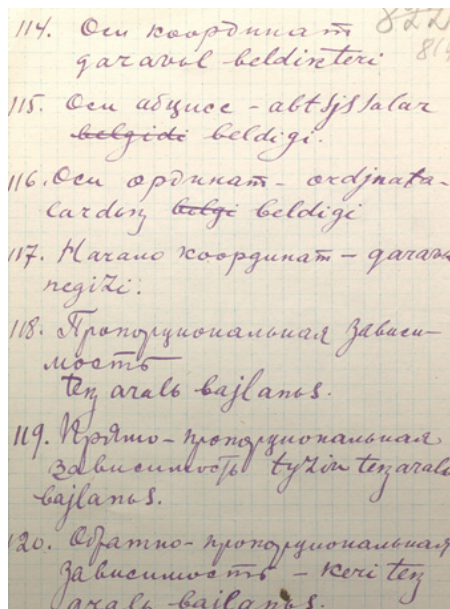 822
114. Оси координат
qaravьl beldikteri
115. Оси абцисс - abtsjssalar
belgidi beldigi.
116. Оси ординат - ordjnata-
lardьꞑ belgi beldigi
117. Начало координат - qaravьl
negizi.
118. Пропорциональная зависи-
мость
teꞑ aralь bajlanьs.
119. Прямо-пропорциональная
зависимость tyzin teꞑ aralь
bajlanьs.
120. Обратно-пропорциональная
зависимость - keri teꞑ
aralь bajlanьs.